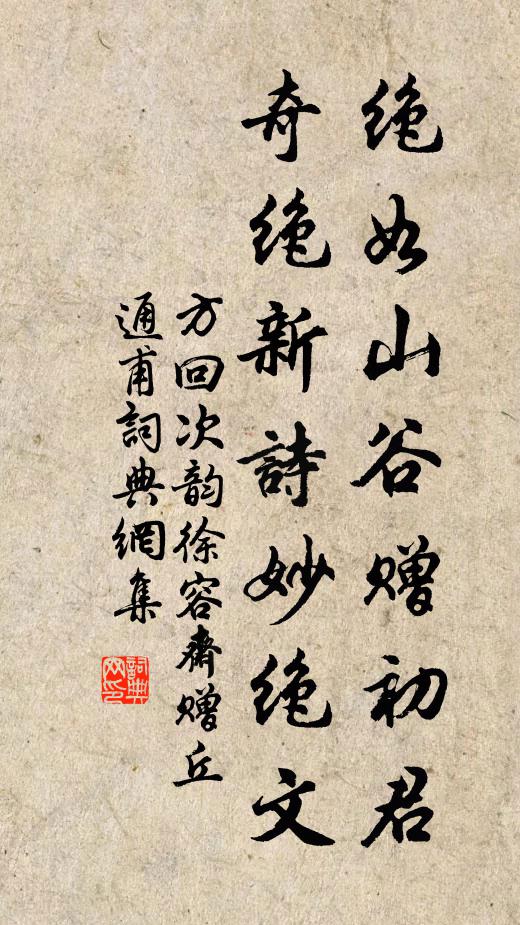 绝如山谷赠初君
奇绝新詩妙绝文
方回次韵徐容齋赠丘
通甫詞典網集
詞典
网印